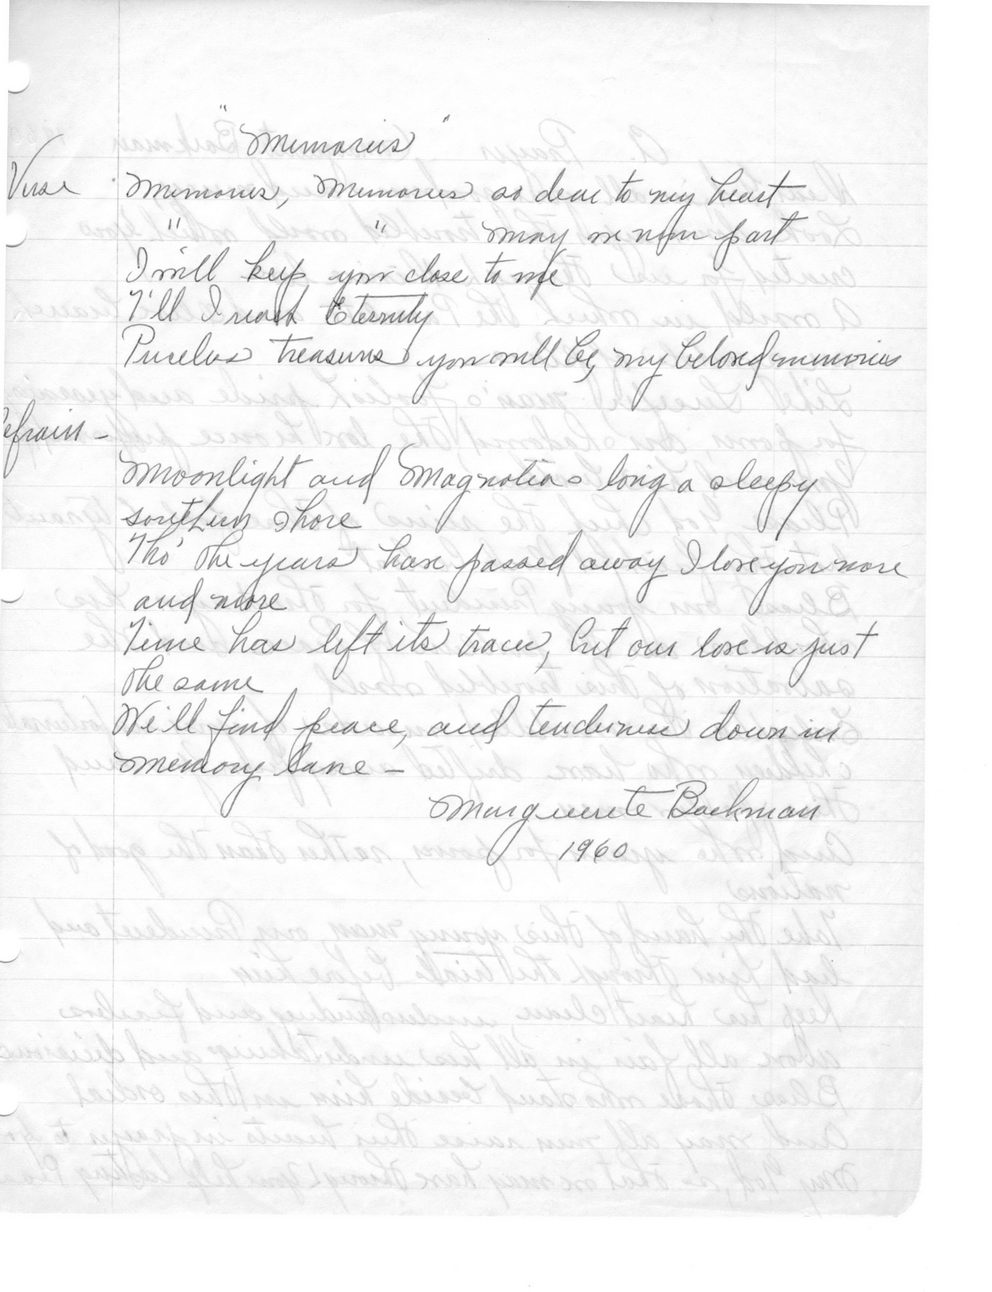 "Memories"
Verse Memories, Memories so dear to my heart
" " may we never part
I will keep you close to me
T'ill I reach Eternity
Priceless treasures you will be, my beloved memories
Refrain -
Moonlight and Magnolias long a sleepy
southern shore
Tho' the years have passed away I love you more
and more
Time has left its traces, but our love is just
the same
We'll find peace, and tenderness down in
memory lane -
Marguerete Backman
1960